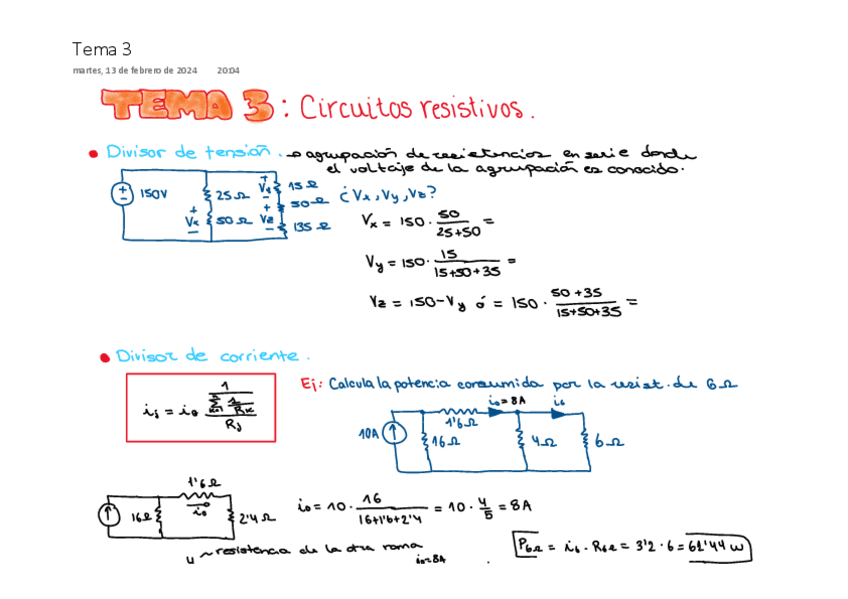 Tema 3
martes, 13 de febrero de 2024 20:04
TEMA 3: Circuitos resistivos.
• Divisor de tensión. → agrupación de resistencias en serie donde
el voltaje de la agrupación es conocido.
150V
25Ω
50Ω
Vx
Vy
Vz
15Ω
50Ω
135Ω
¿Vx, Vy, Vz?
Vx = 150 · 50/(25+50) =
Vy = 150 · 15/(15+50+35) =
Vz = 150-Vy ó = 150 · (50+35)/(15+50+35) =
• Divisor de corriente.
Ej: Calcula la potencia consumida por la resist. de 6Ω
i0=8A
i6
10A
16Ω
1'6Ω
4Ω
6Ω
1'6Ω
16Ω
i0
2'4Ω
i0 = 10 · 16/(16+1'6+2'4) = 10 · 4/5 = 8A
resistencia de la otra rama
i0=8A
P6Ω = i6 · R6Ω = 3'2 · 6 = 61'44 w